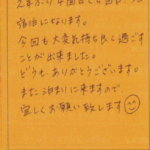 宿泊になります。
今回も大変気持ち良く過ごす
ことが出来ました。
どうも ありがとうございます。
また泊まりに来ますので
宜しくお願い致します